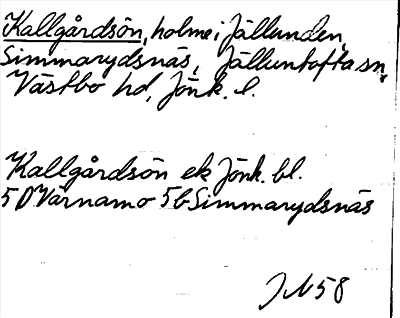 Kallgårdsön, holme i Jällunden,
Simmarydsnäs, Jälluntofta sn,
Västbo hd, Jönk. l.
Kallgårdsön ek Jönk. bl.
5 D Värnamo 5b Simmarydsnäs
JN58